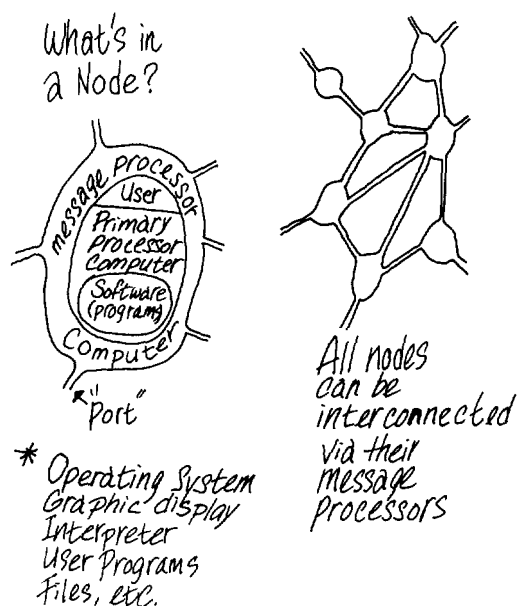 What's in
a Node?
message processor
Computer
User
Primary
Processor
Computer
Software
(programs)
"Port"
* Operating System
Graphic display
Interpreter
User Programs
Files, etc.
All nodes
can be
interconnected
via their
message
processors